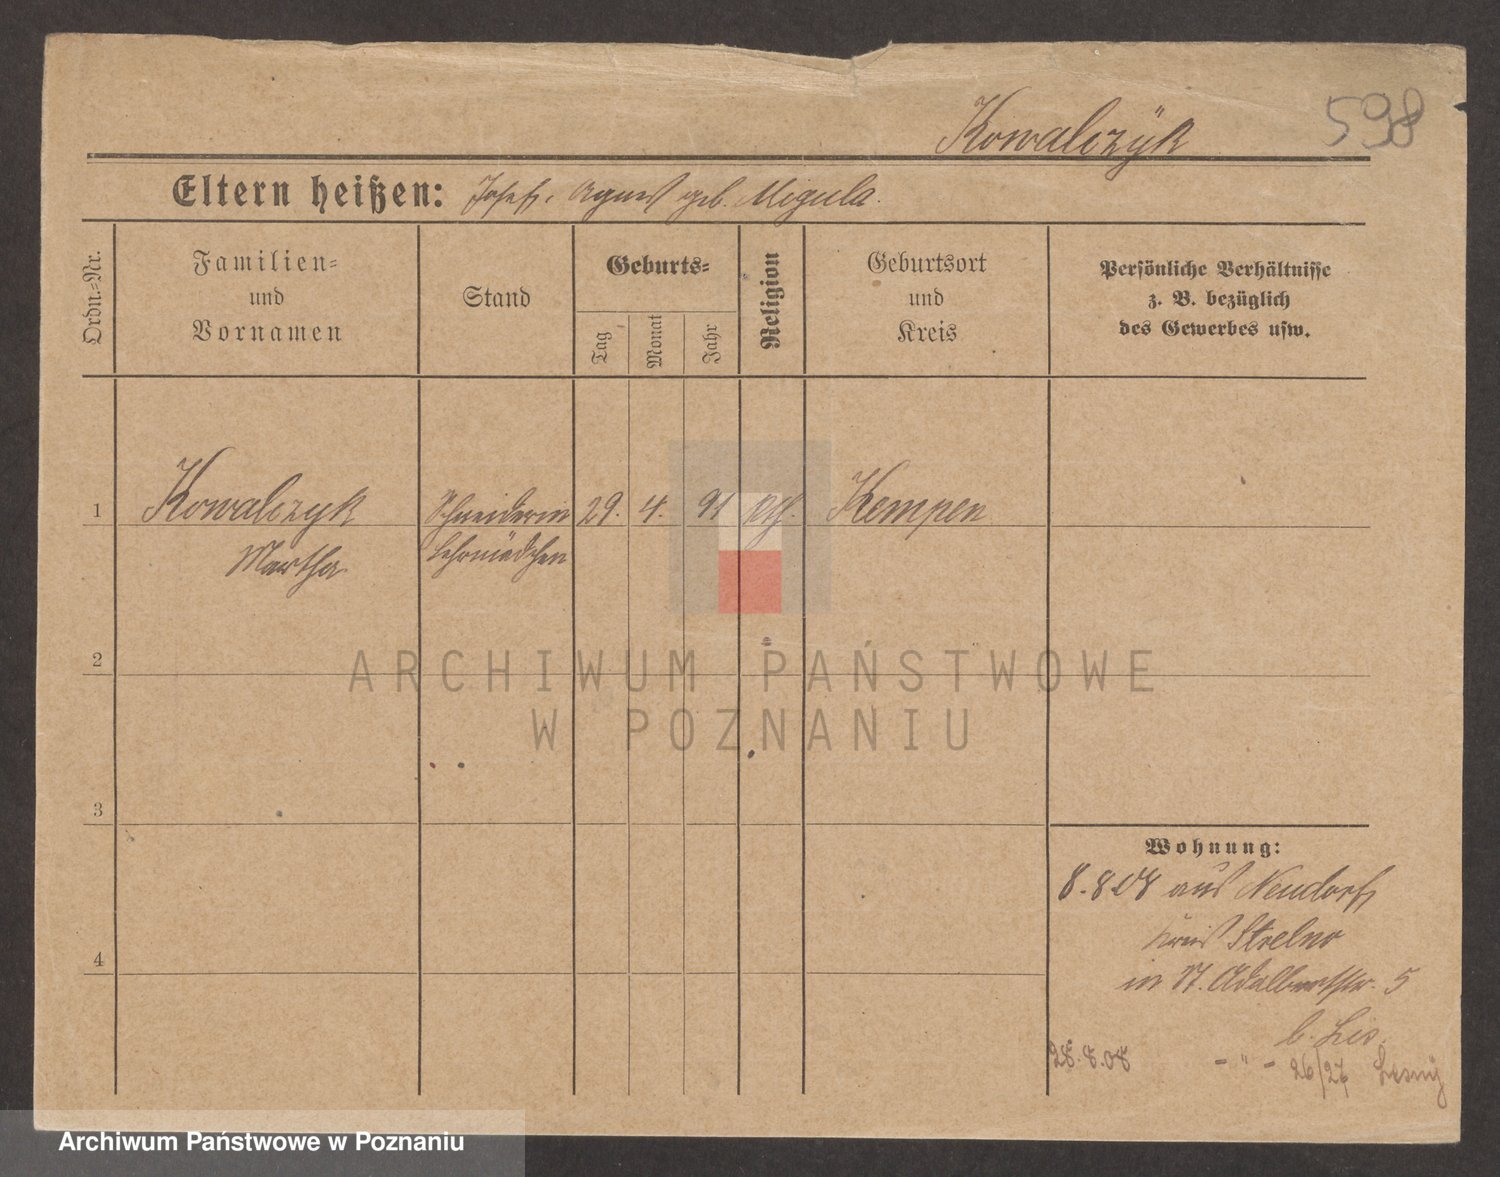 Kowalczÿk
598
Eltern heißen: Josef, Agnes geb. Migula.
Ordn.-Nr.
Familien-
und
Vornamen
Stand
Geburts-
Tag
Monat
Jahr
Religion
Geburtsort
und
Kreis
Persönliche Verhältnisse
z. B. bezüglich
des Gewerbes usw.
1 Kowalczyk Schneiderin 29. 4. 91 kth. Kempen
Martha Lehrmädchen
2
3
4
Wohnung:
8.8.08 aus Neudorf
Kreis Strelno
in St. Adalbertstr. 5
b. Lis
28.8.08 - " - 26/27
ARCHIWUM PAŃSTWOWE
W POZNANIU
Archiwum Państwowe w Poznaniu